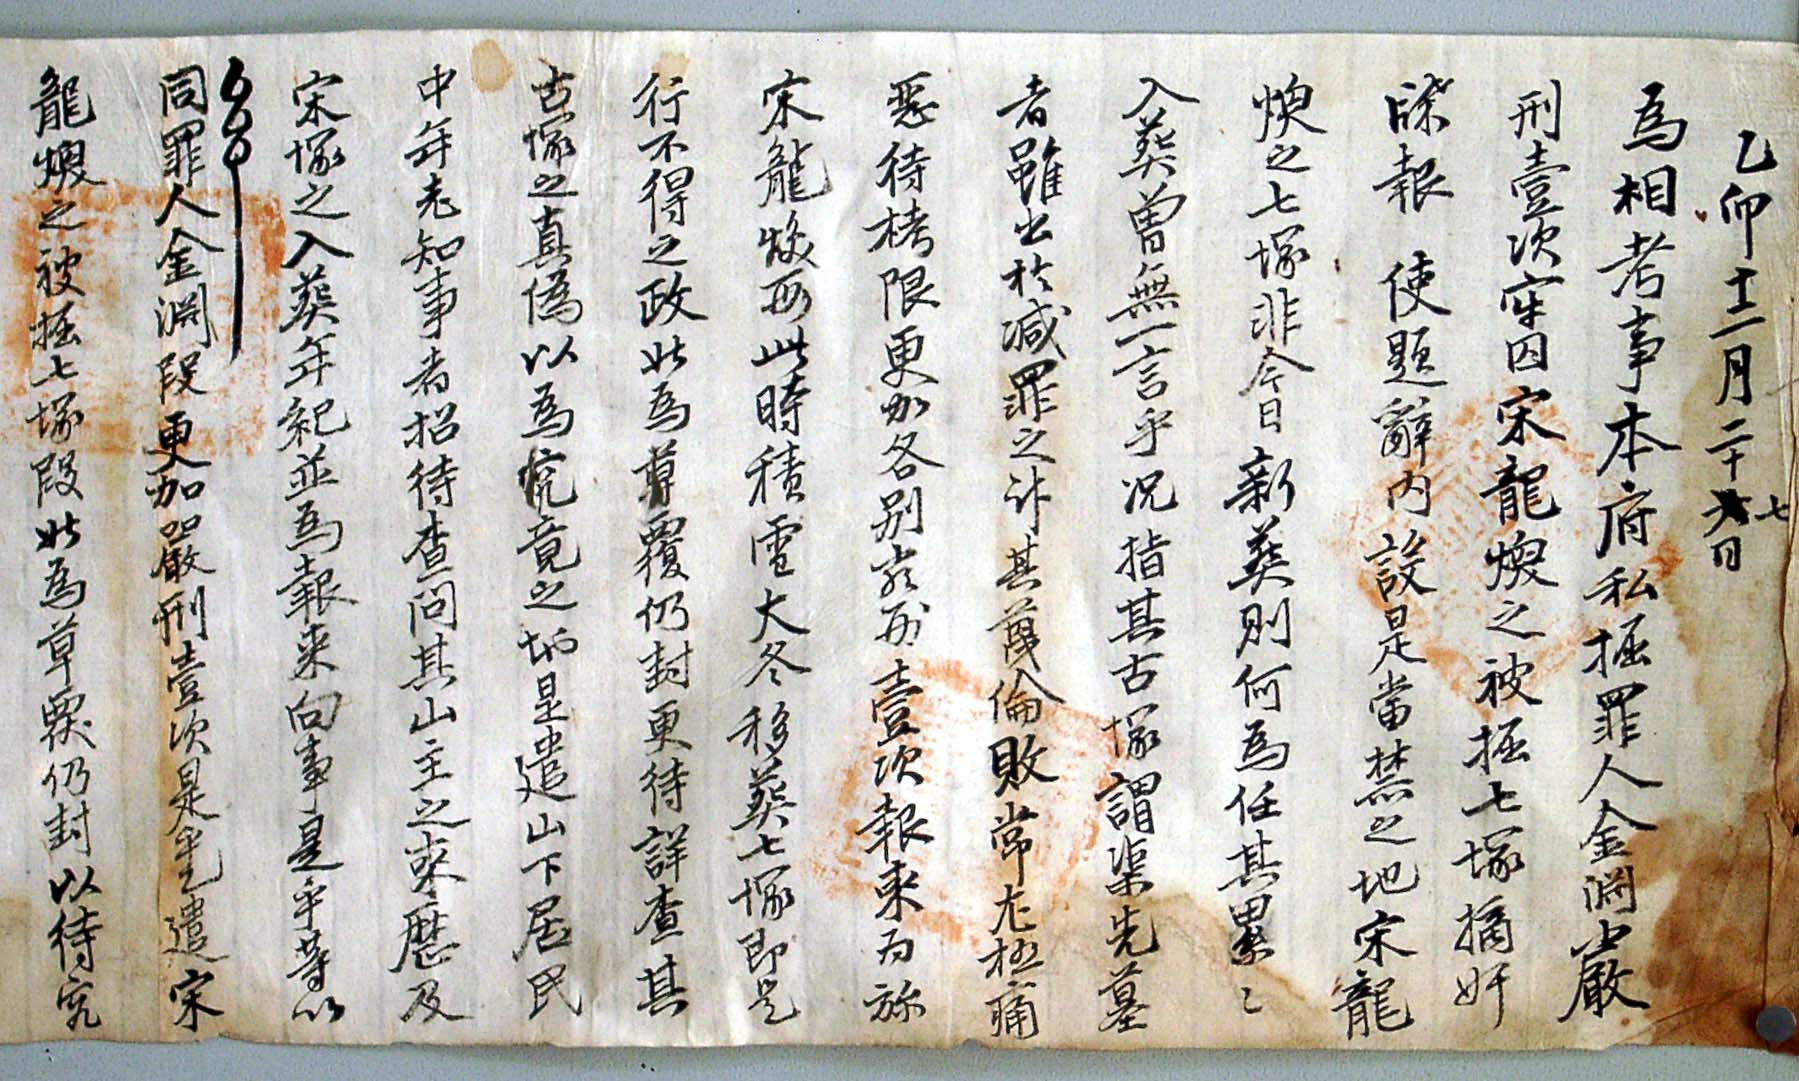 乙卯十二月二十七日
為相考事本府私掘罪人金渊嚴
刑壹次牢囚宋龍煥之被掘七塚摘奸
牒報 使題辭內設是當禁之地宋龍
煥之七塚非今日新葬則何為任其累〻
入葬曾無一言乎况指其古塚謂渠先墓
者雖出於减罪之計其蔑倫敗常尤極痛
惡待栲限更加各别嚴刑壹次報来為旀
宋龍煥段此時積雪大冬移葬七塚即是
行不得之政此為尊覆仍封更待詳查其
古塚之真僞以為究竟之地是遣山下居民
中年老知事者招待查問其山主之来歷及
宋塚之入葬年紀並為報来向事是乎等以
同罪人金渊段更加嚴刑壹次是乎遣宋
龍煥之被掘七塚段此為草覆仍封以待究